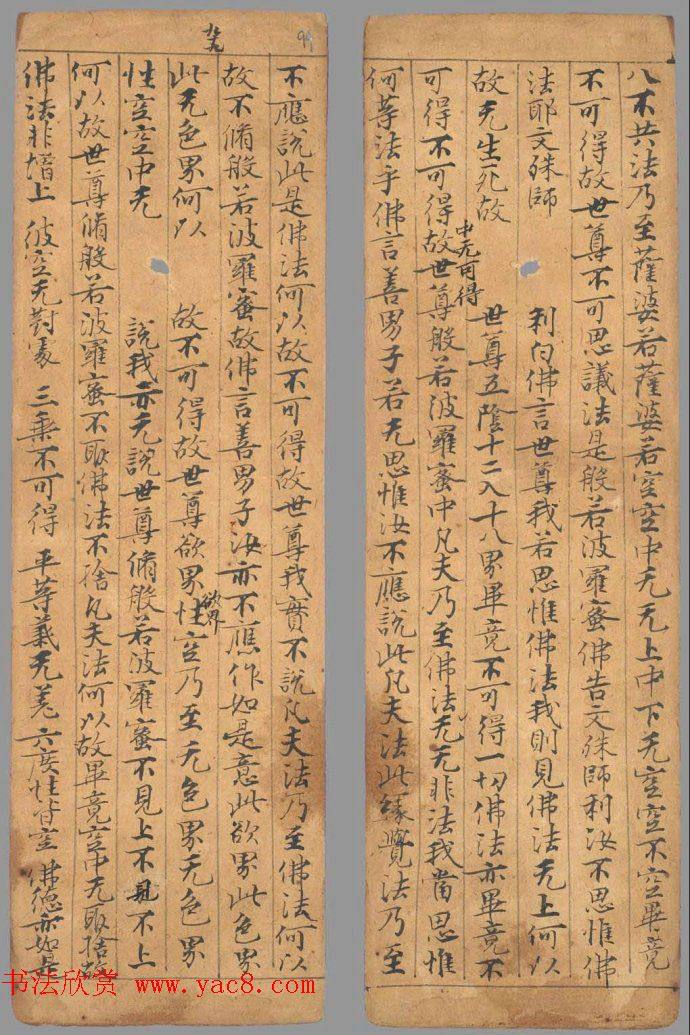 八不共法乃至薩婆若薩婆若空空中无无上中下无空空不空畢竟
不可得故世尊不可思議法是般若波羅蜜佛告文殊師利汝不思惟佛
法耶文殊師 利白佛言世尊我若思惟佛法我則見佛法无上何以
故无生死故 世尊五陰十二入十八界畢竟不可得一切佛法亦畢竟不
中无可得
可得不可得故世尊般若波羅蜜中凡夫乃至佛法无无非法我當思惟
何等法乎佛言善男子若无思惟汝不應說此凡夫法此緣覺法乃至
99
不應說此是佛法何以故不可得故世尊我實不說凡夫法乃至佛法何以
故不脩般若波羅蜜故佛言善男子汝亦不應作如是意此欲界此色界
此无色界何以 故不可得故世尊欲界性空乃至无色界无色界
欲界
性空空中无 說我亦无說世尊脩般若波羅蜜不見上不見不上
何以故世尊脩般若波羅蜜不取佛法不捨凡夫法何以故畢竟空中无取捨故
佛法非增上 彼空无對處 三乘不可得 平等義无差 六度性皆空 佛德亦如是
书法欣赏 www.yac8.com